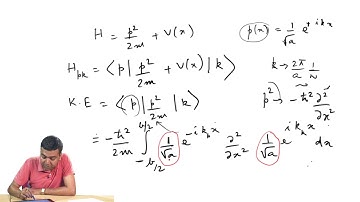 H = p²/2m + V(x)
p(x) = 1/√a e^{+ikx}
H_{pk} = ⟨p| p²/2m + V(x) |k⟩
k → 2π/a 1/N
K.E = ⟨p| p²/2m |k⟩
p² → -ħ² ∂²/∂x²
= -ħ²/2m ∫_{-b/2}^{b/2} 1/√a e^{-ik_p x} ∂²/∂x² 1/√a e^{ik_k x} dx